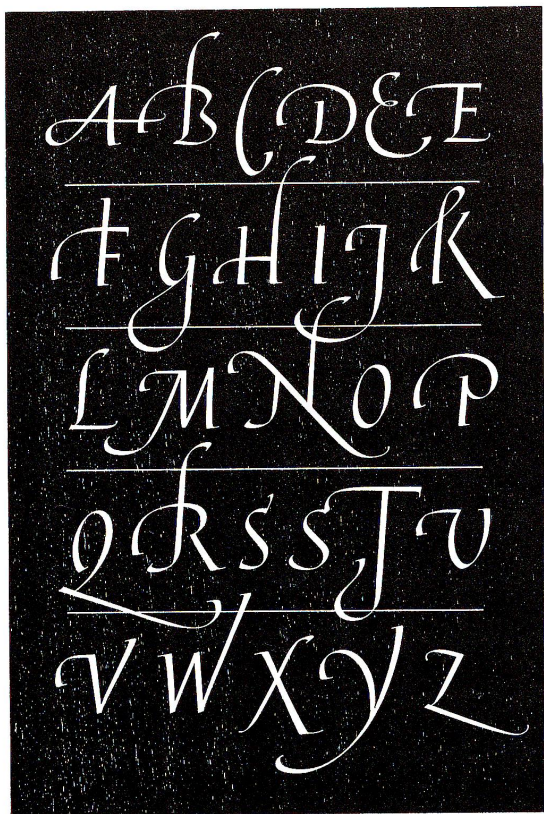 A B C D E E
F G H I J K
L M N O P
Q R S S T U
V W X Y Z